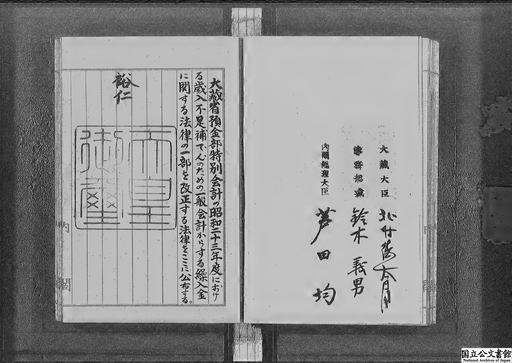 大蔵大臣 北村徳太郎
法務総裁 鈴木義男
内閣総理大臣 芦田均
大蔵省預金部特別会計の昭和二十三年度におけ
る歳入不足補てんのための一般会計からする繰入金
に関する法律の一部を改正する法律をここに公布する。
裕仁
天皇
御璽
内閣
国立公文書館
National Archives of Japan